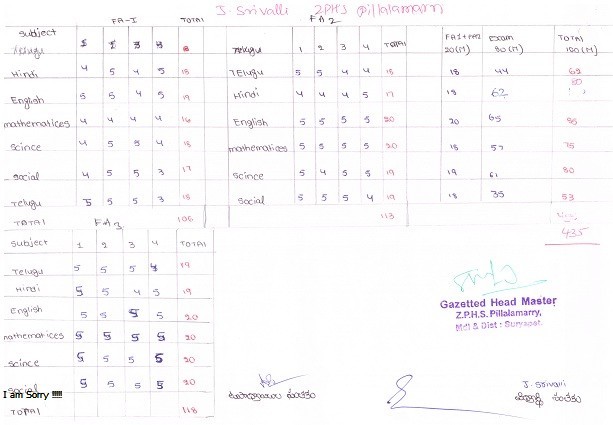 J. Srivalli ZPHS Pillalamarri
FA-I TOTAL
Subject
Hindi 4 5 4 5 18
English 5 5 4 5 19
mathematices 4 4 4 4 16
Scince 4 5 5 4 18
Social 4 5 5 3 17
Telugu 5 5 5 3 18
TOTAL 106
FA2
Telugu 1 2 3 4 TOTAL
TELugu 5 5 4 4 18
Hindi 4 4 4 5 17
English 5 5 5 5 20
mathematices 5 5 5 5 20
Scince 5 4 5 5 19
Social 5 5 5 4 19
113
FA1+FA2 Exam TOTAL
20(M) 80(M) 100(M)
18 44 62
80
18 62
20 65 85
18 57 75
19 61 80
18 35 53
435
FA3
Subject 1 2 3 4 TOTAL
Telugu 5 5 5 4 19
Hindi 5 5 4 5 19
English 5 5 5 5 20
mathematices 5 5 5 5 20
Scince 5 5 5 5 20
Social 5 5 5 5 20
I am Sorry !!!!!
TOTAL 118
Gazetted Head Master
Z.P.H.S. Pillalamarry,
Mdl & Dist : Suryapet.
J. Srivalli